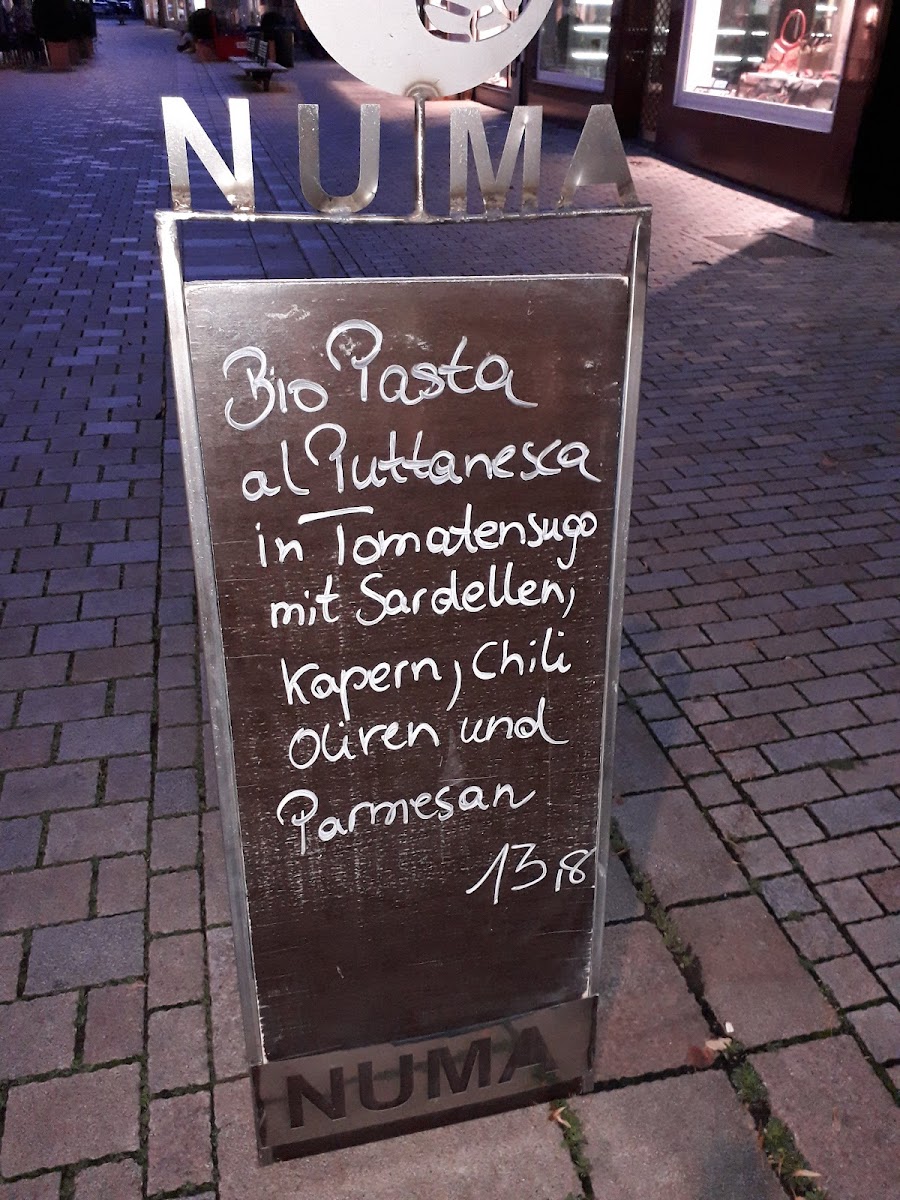 NUMA
Bio Pasta
al Puttanesca
in Tomatensugo
mit Sardellen,
Kapern, Chili
Oliven und
Parmesan
13,8
NUMA